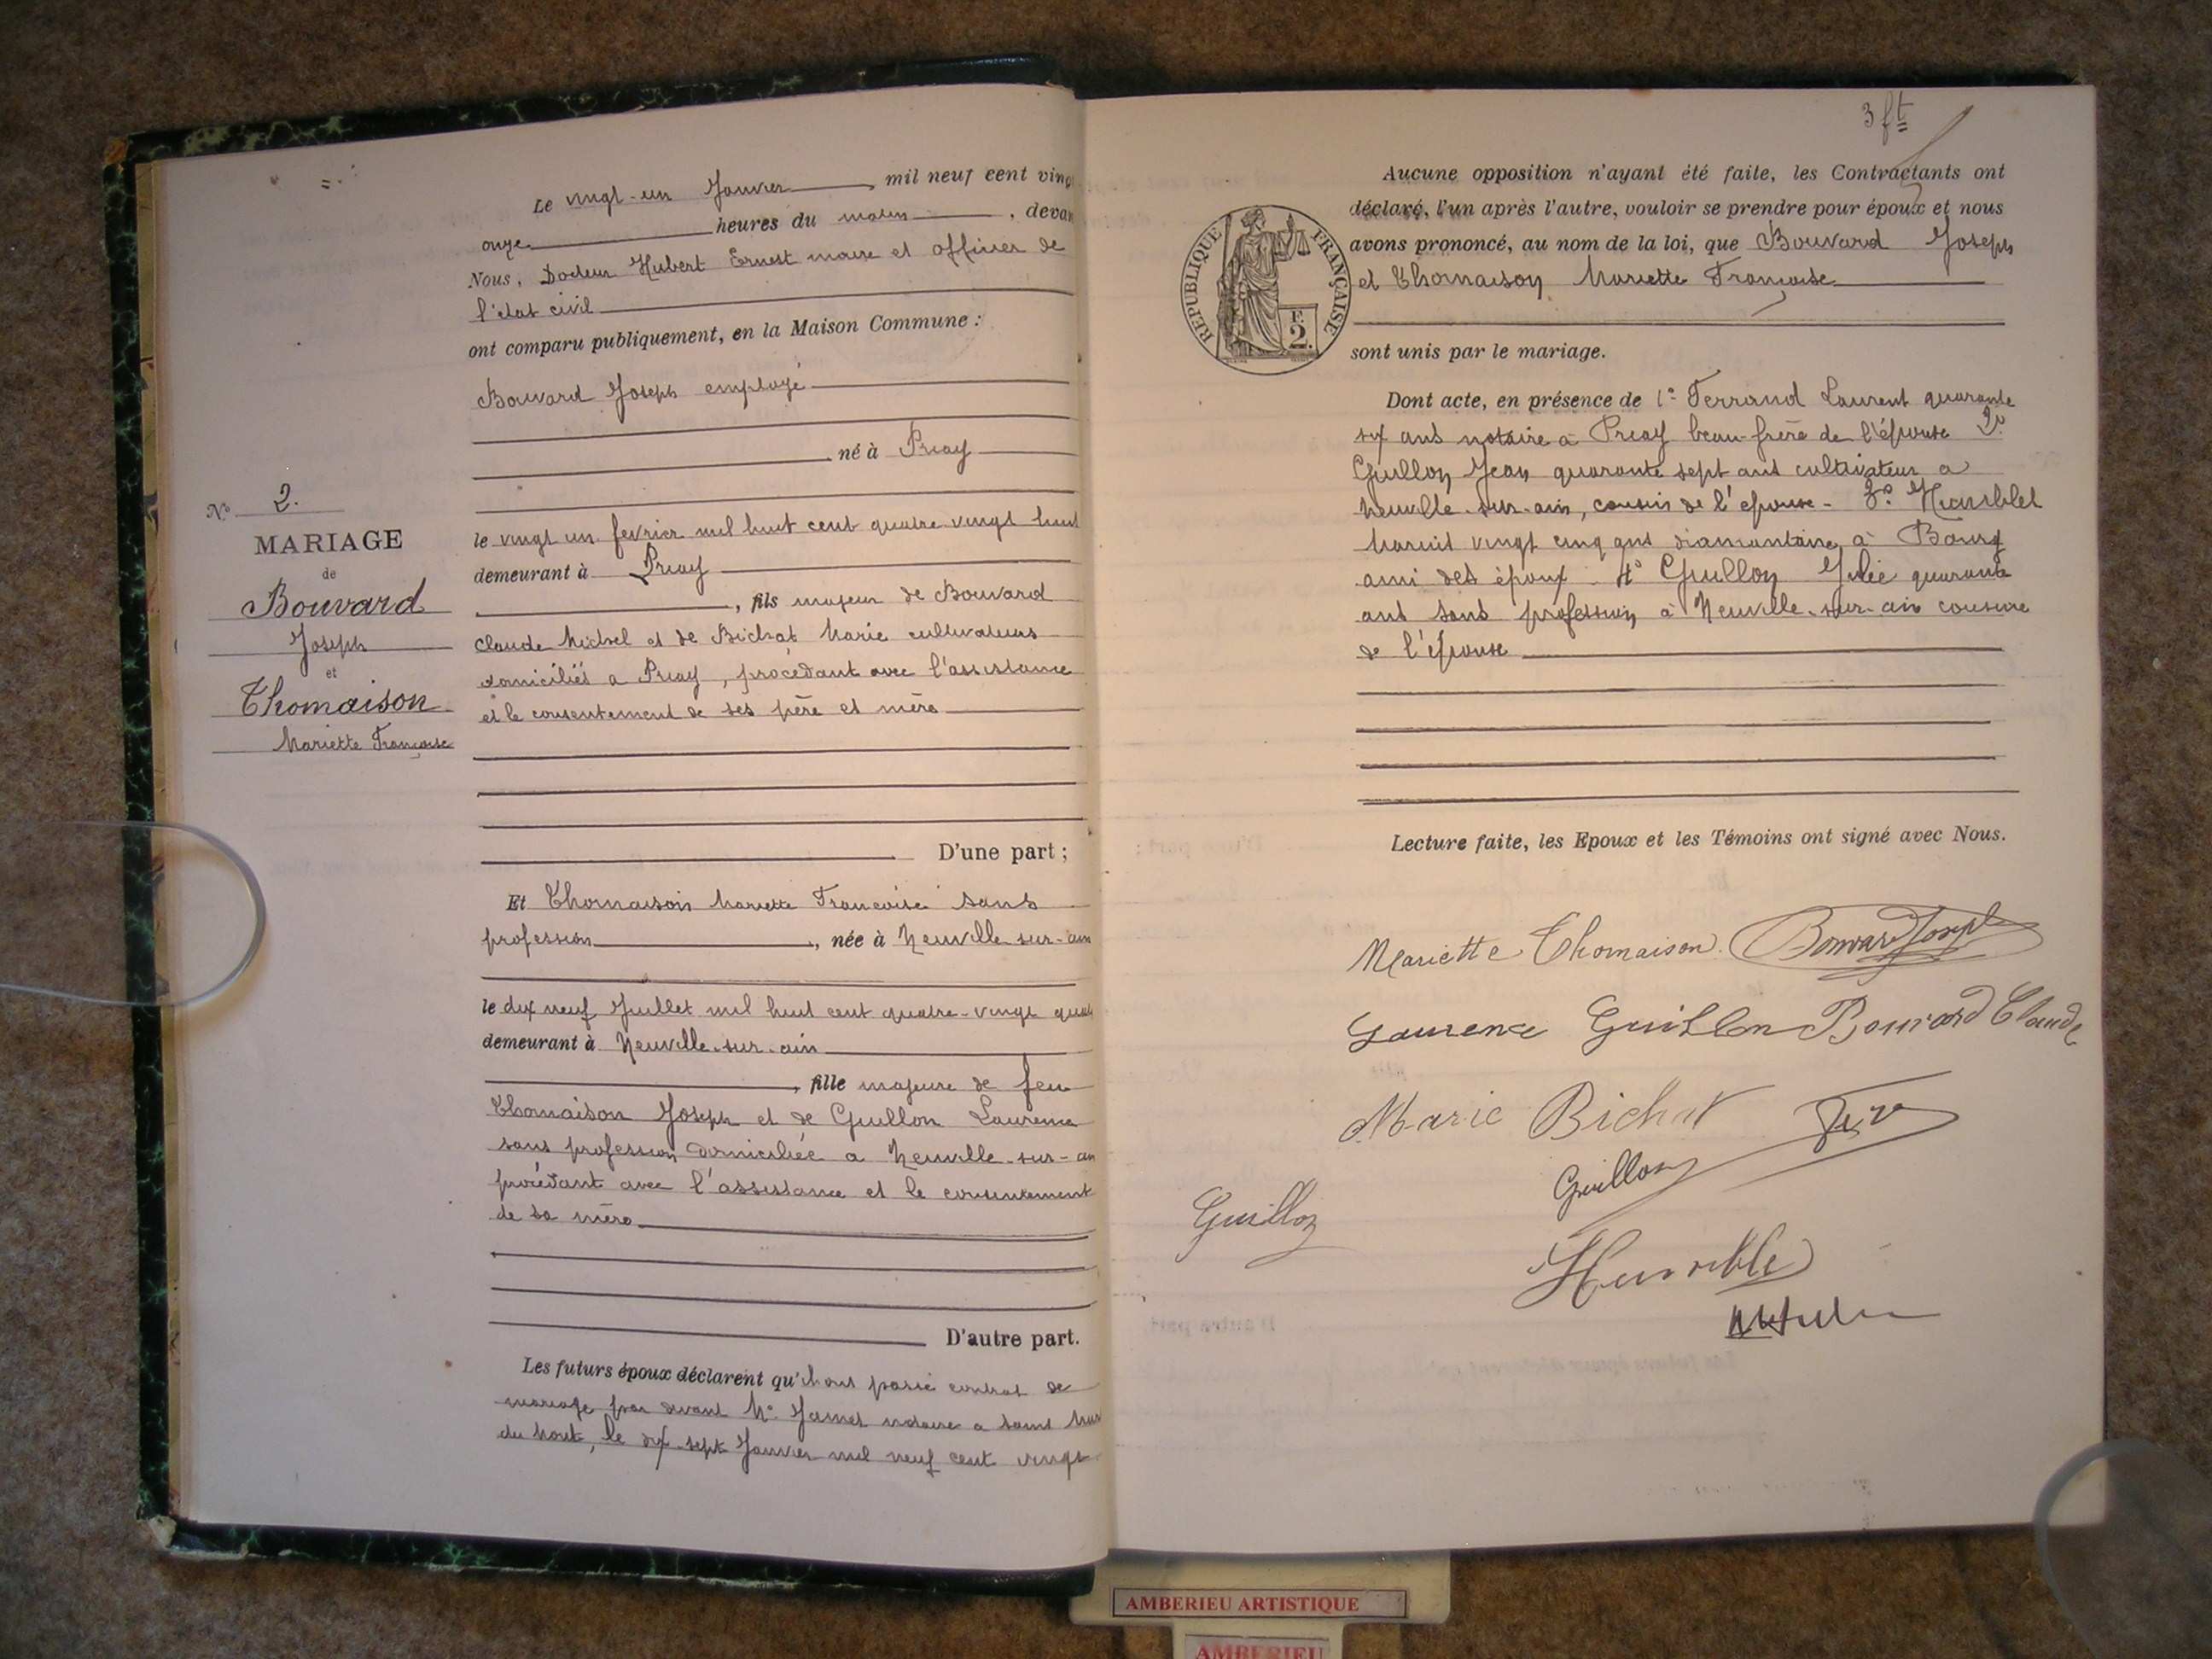 Le vingt-un Janvier mil neuf cent ving
onze heures du matin, devan
Nous, Docteur Hubert Ernest maire et officier de
l'état civil
ont comparu publiquement, en la Maison Commune :
Bouvard Joseph employé
né à Priay
le vingt un fevrier mil huit cent quatre vingt huit
demeurant à Priay
, fils majeur de Bouvard
Claude Michel et de Bichat Marie cultivateurs
domiciliés a Priay, procédant avec l'assistance
et le consentement de ses père et mère
D'une part ;
Et Thomaison Mariette Françoise sans
profession, née à Neuville-sur-ain
le dix neuf Juillet mil huit cent quatre-vingt quat
demeurant à Neuville-sur-ain
, fille majeure de feu
Thomaison Joseph et de Guillon Laurence
sans profession domiciliée a Neuville-sur-ain
procédant avec l'assistance et le consentement
de sa mère
D'autre part.
Les futurs époux déclarent qu'ils ont passé contrat de
mariage par devant Me notaire a Saint
du Mont, le dix-sept Janvier mil neuf cent vingt
N° 2.
MARIAGE
de
Bouvard
Joseph
et
Thomaison
Mariette Françoise
3 ft
Aucune opposition n'ayant été faite, les Contractants ont
déclaré, l'un après l'autre, vouloir se prendre pour époux et nous
avons prononcé, au nom de la loi, que Bouvard Joseph
et Thomaison Mariette Françoise
sont unis par le mariage.
RÉPUBLIQUE FRANÇAISE
F.
2.
Dont acte, en présence de 1° Ferrand Laurent quarante
six ans notaire à Priay beau-frère de l'épouse 2°
Guillon Jean quarante sept ans cultivateur a
Neuville-sur-ain, cousin de l'epouse - 3° Humblet
vingt cinq ans diamantaire à Bourg
ami des époux - 4° Guillon Julie quarante
ans sans profession à Neuville-sur-ain cousine
de l'épouse
Lecture faite, les Epoux et les Témoins ont signé avec Nous.
Mariette Thomaison Bouvard Joseph
Laurence Guillon Bouvard Claude
Marie Bichat
Guillon
Guillon
AMBERIEU ARTISTIQUE
AMBERIEU